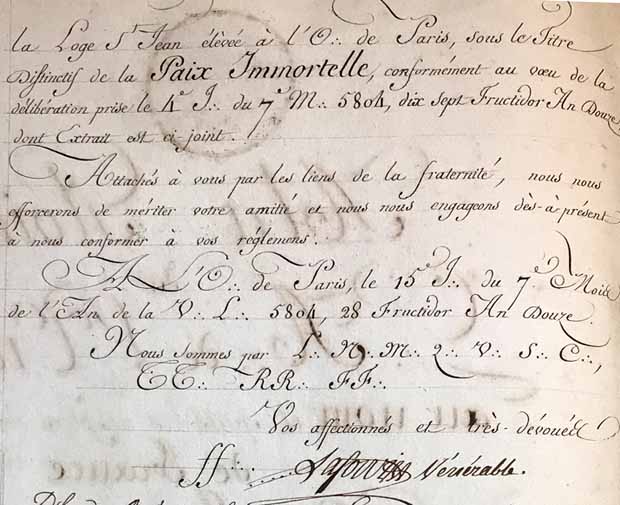 la Loge St Jean élevée à l'O∴ de Paris, sous le Titre
Distinctif de la Paix Immortelle, conformément au vœu de la
délibération prise le 4e J∴ du 7e M∴ 5804, dix sept Fructidor An Douze,
dont Extrait est ci-joint.
Attachés à vous par les liens de la fraternité, nous nous
efforcerons de mériter votre amitié et nous nous engageons dès-à-présent
à nous conformer à vos réglemens.
A L'O∴ de Paris, le 15e J∴ du 7e Mois
de l'An de la V∴ L∴ 5804, 28 Fructidor An Douze.
Nous sommes par L∴ N∴ M∴ 2∴ V∴ S∴ C∴,
TT∴ RR∴ FF∴
Vos affectionnés et très-dévoués
ff∴ Vénérable.